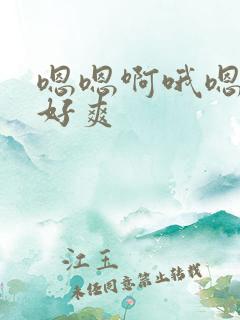 嗯嗯啊哦嗯
好爽
江玉
未经同意禁止转载